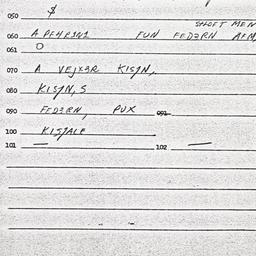 050 $
SHOFT MEN
060 A PE4R1N1 FUN FED2RN AFM
061 O
070 A VEJX3R KIS1N,
080 KIS1N, S
090 FED3RN, PUX 091
100 KIS7ALE
101 — 102 —